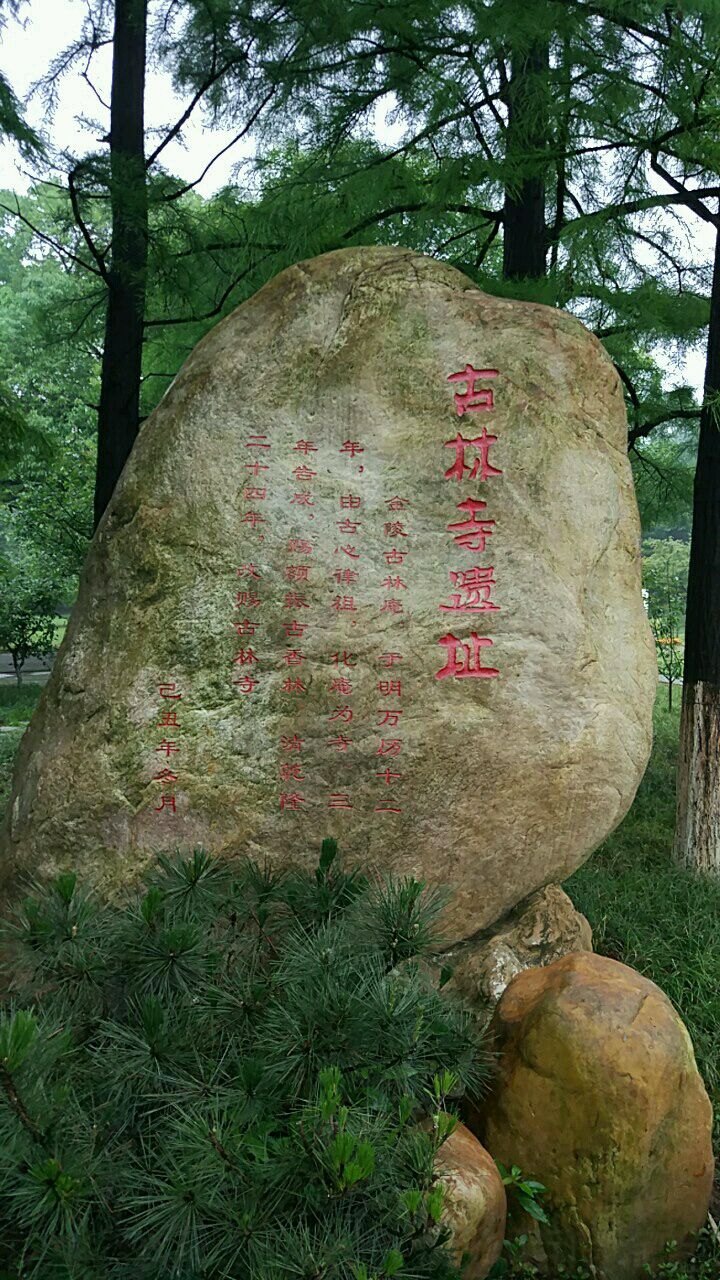 古林寺遗址
金陵古林庵 于明万历十二
年，由古心律祖，化庵为寺 三
年告成，赐额振古香林 清乾隆
二十四年，改赐古林寺
己丑年冬月